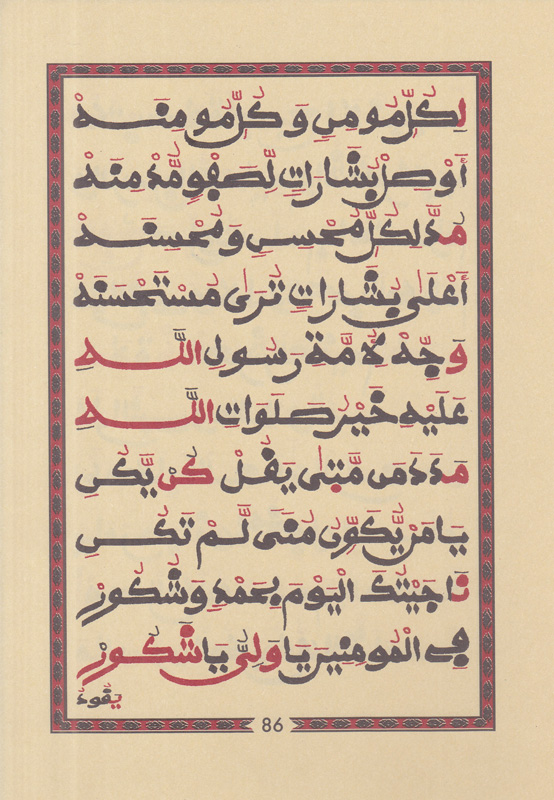 لِكُلِّ مُومِنٍ وَكُلِّ مُومِنَهْ
أَوْصِلْ بِشَارَاتٍ لِّصَفْوٍ مُّدْمِنَهْ
مُدَّ لِكُلِّ مُحْسِنٍ وَمُحْسِنَهْ
أَعْلَى بِشَارَاتٍ تُرَى مُسْتَحْسَنَهْ
وَجِّهْ لِأُمَّةِ رَسُولِ اللَّهِ
عَلَيْهِ خَيْرُ صَلَوَاتِ اللَّهِ
مَدَدَ مَن مَّتَى يَقُلْ كُنْ يَّكُنِ
يَا مَنْ يُّكَوِّنُ مُنىً لَّمْ تَكُنِ
نَاجَيْتُكَ الْيَوْمَ بِحَمْدٍ وَشُكُورْ
فِي الْمُومِنِينَ يَا وَلِيُّ يَا شَكُورْ
يَقُودُ
86